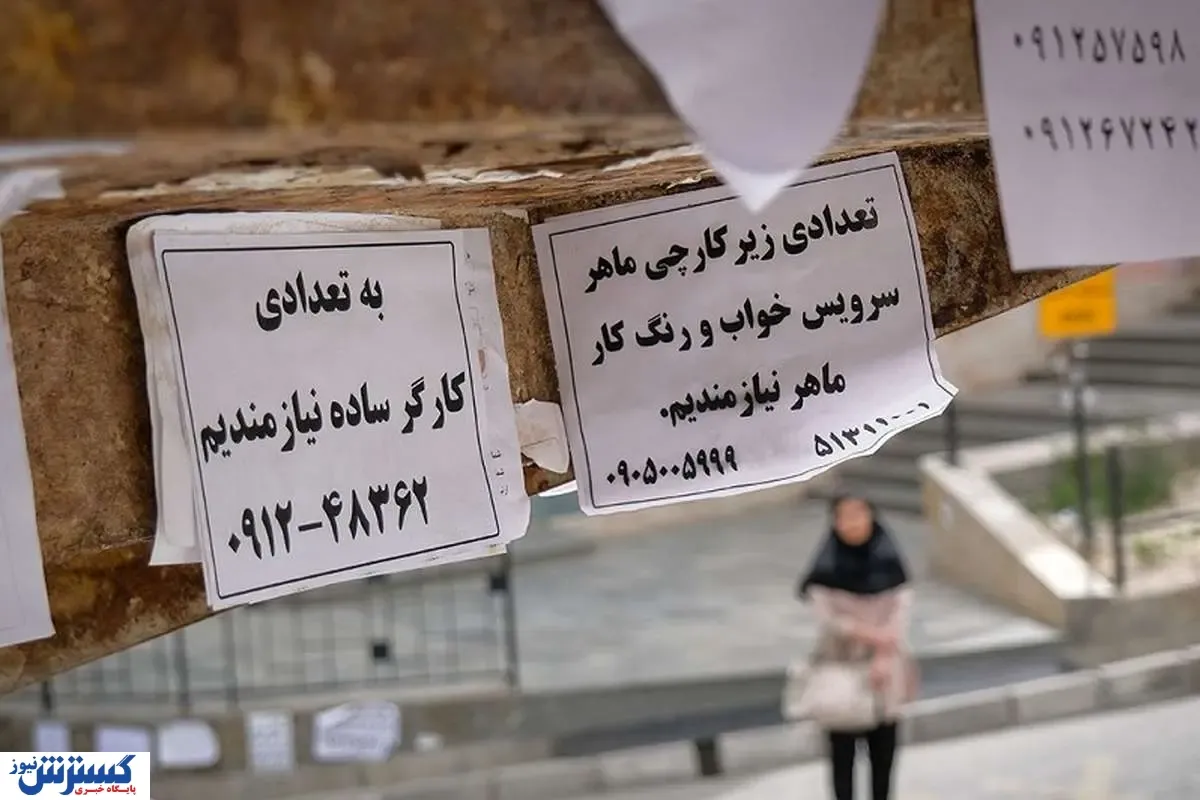 به تعدادی
کارگر ساده نیازمندیم
۰۹۱۲-۴۸۳۶۲
تعدادی زیر کارچی ماهر
سرویس خواب و رنگ کار
ماهر نیازمندیم.
۰۹۰۵۰۰۵۹۹۹
۰۹۱۲۵۷۵۹۸
۰۹۱۲۶۷۲۴۲
گسترش نیوز
پایگاه خبری